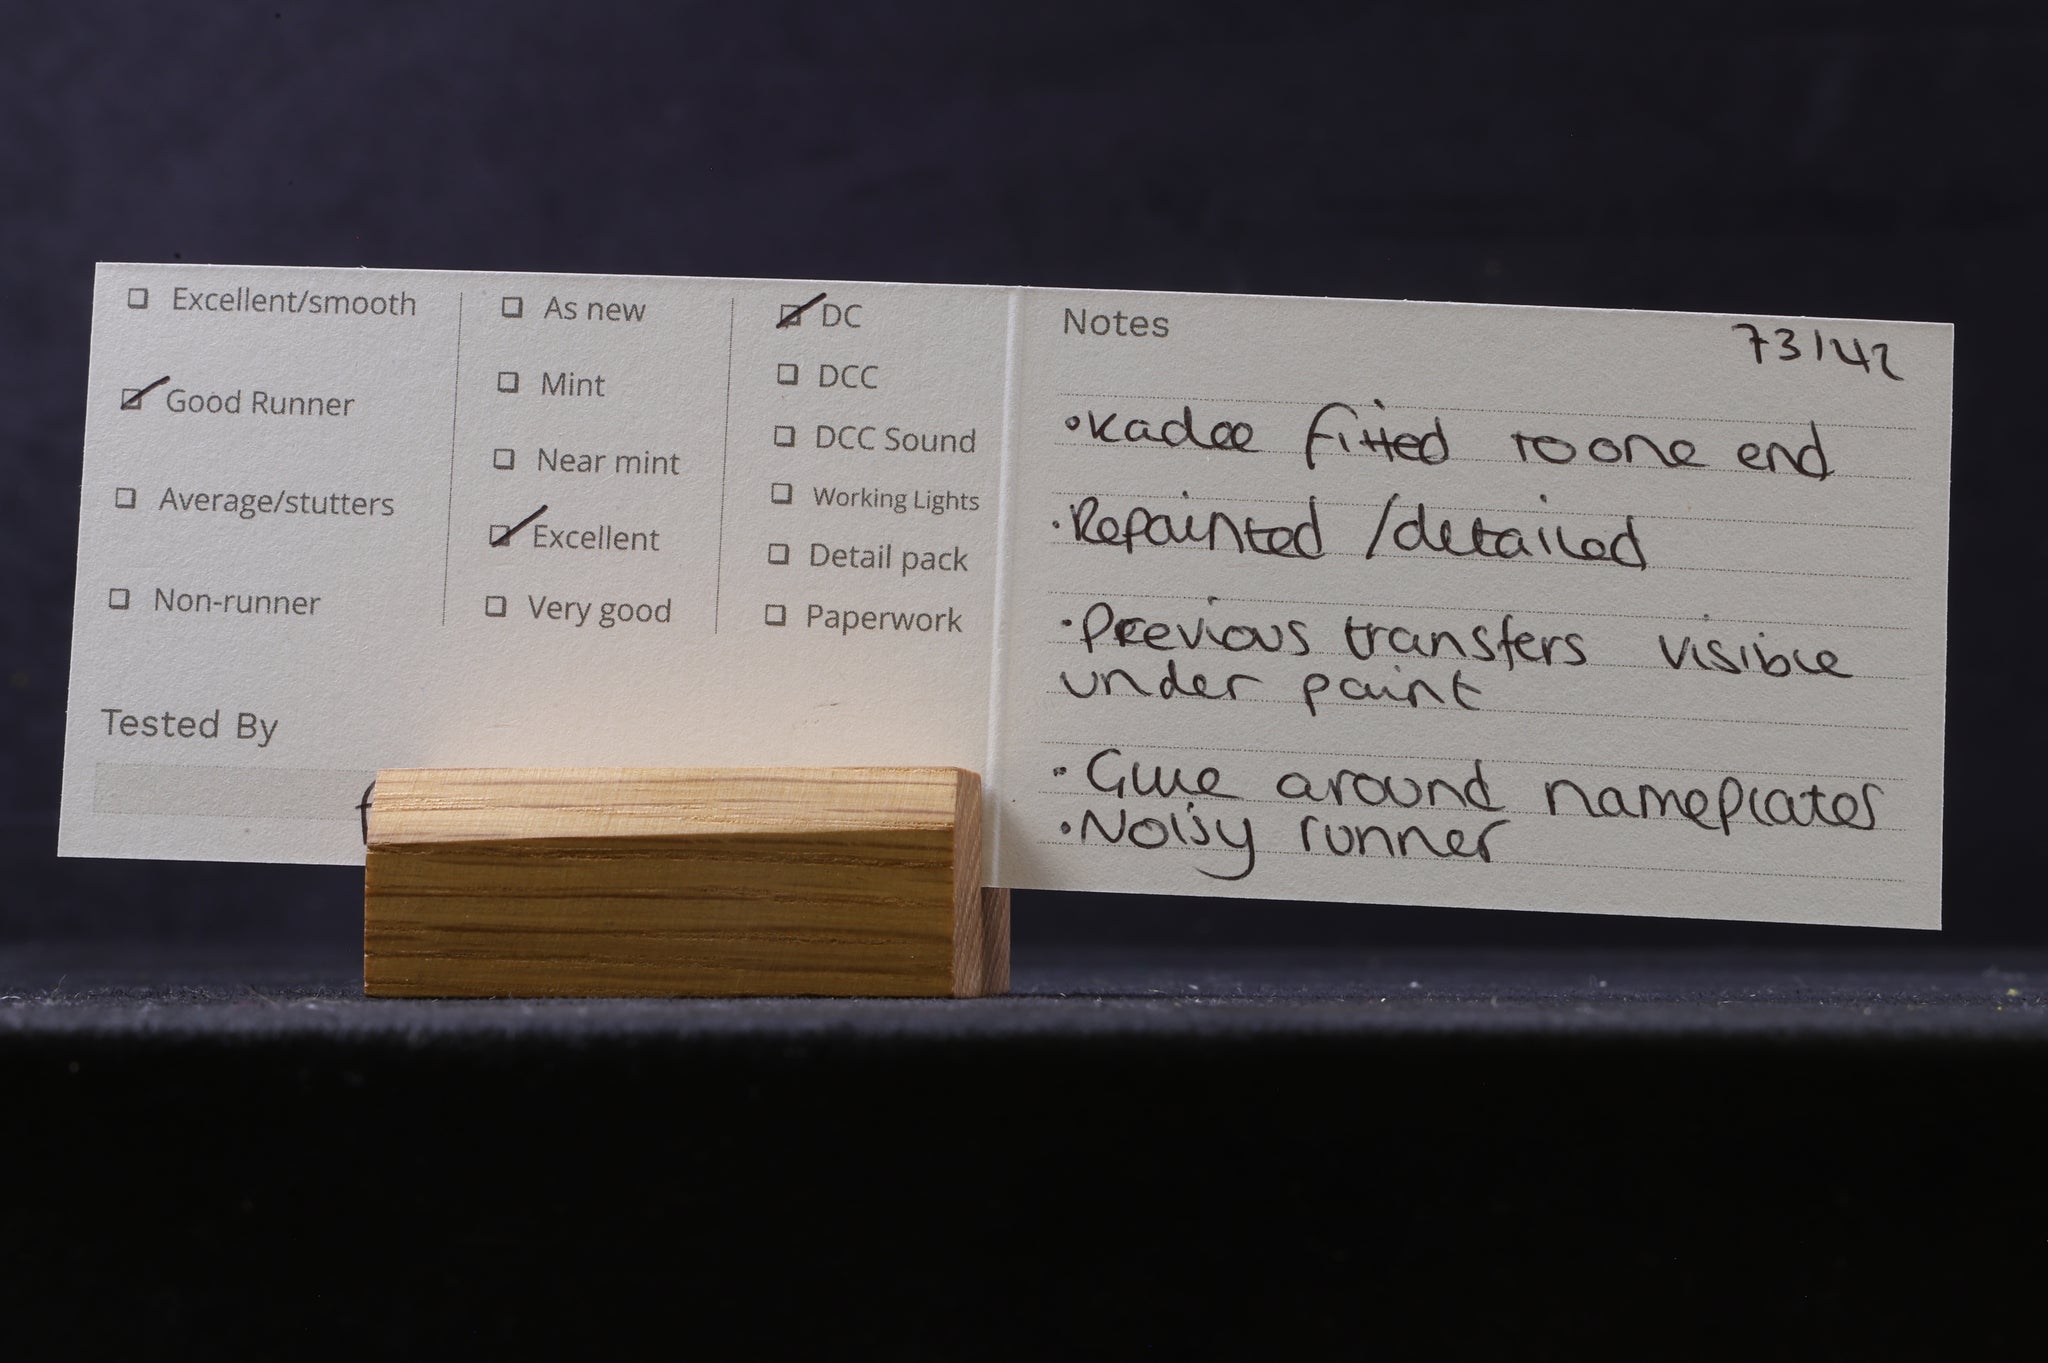 ☐ Excellent/smooth
☑ Good Runner
☐ Average/stutters
☐ Non-runner
Tested By
☐ As new
☐ Mint
☐ Near mint
☑ Excellent
☐ Very good
☑ DC
☐ DCC
☐ DCC Sound
☐ Working Lights
☐ Detail pack
☐ Paperwork
Notes
73142
• Kadee fitted to one end
• Repainted / detailed
• Previous transfers visible
under paint
• Glue around nameplates
• Noisy runner